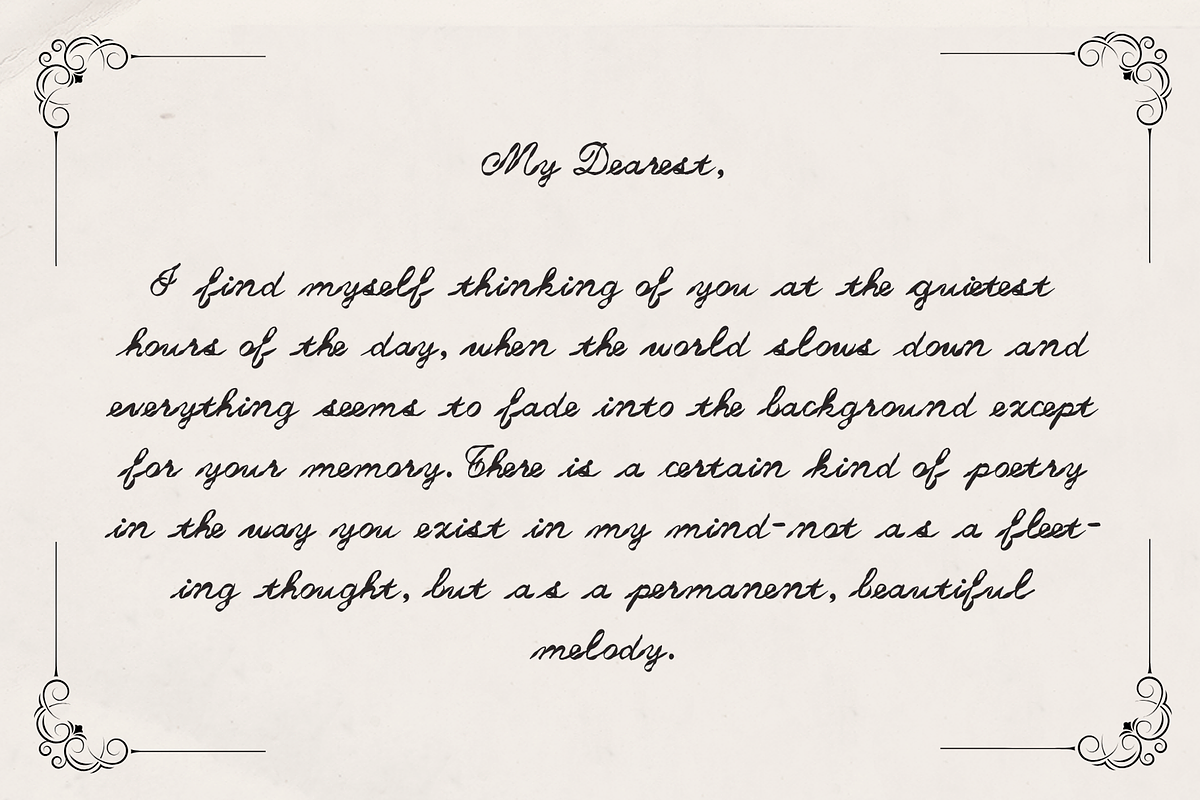 My Dearest,
I find myself thinking of you at the quietest
hours of the day, when the world slows down and
everything seems to fade into the background except
for your memory. There is a certain kind of poetry
in the way you exist in my mind-not as a fleet-
ing thought, but as a permanent, beautiful
melody.